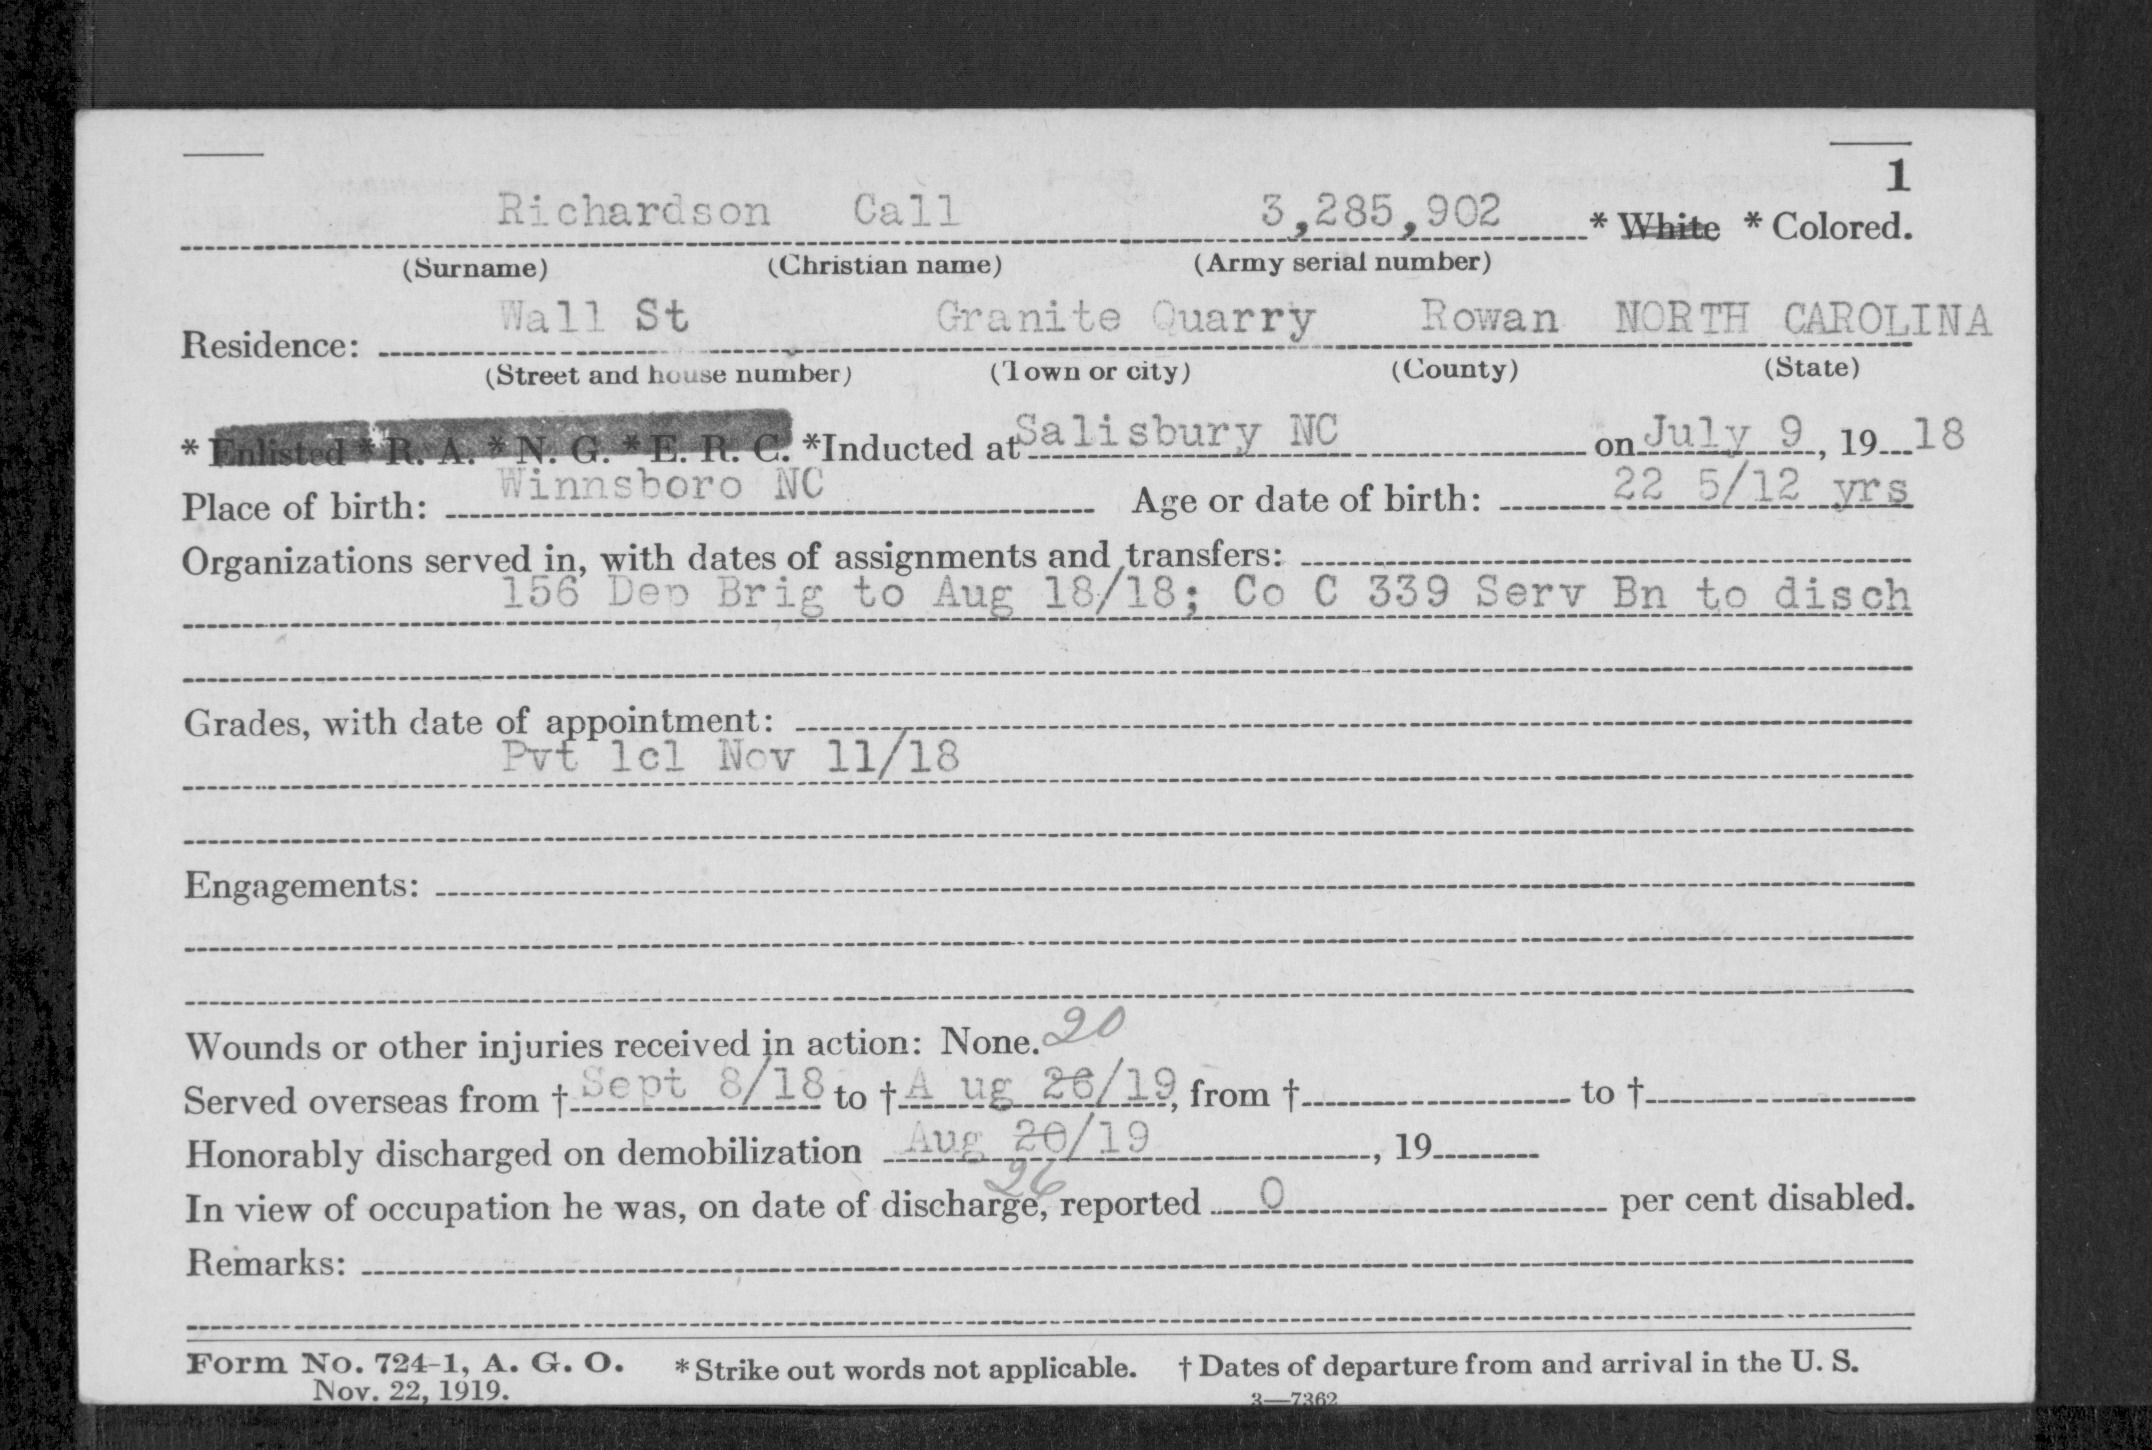 1
Richardson Call 3,285,902 * White * Colored.
(Surname) (Christian name) (Army serial number)
Residence: Wall St Granite Quarry Rowan NORTH CAROLINA
(Street and house number) (Town or city) (County) (State)
* Enlisted * R. A. * N. G. * E. R. C. *Inducted at Salisbury NC on July 9, 19 18
Place of birth: Winnsboro NC Age or date of birth: 22 5/12 yrs
Organizations served in, with dates of assignments and transfers:
156 Dep Brig to Aug 18/18; Co C 339 Serv Bn to disch
Grades, with date of appointment:
Pvt 1cl Nov 11/18
Engagements:
Wounds or other injuries received in action: None. 20
Served overseas from † Sept 8/18 to † A ug 26/19, from † to †
Honorably discharged on demobilization Aug 20/19, 19
26
In view of occupation he was, on date of discharge, reported 0 per cent disabled.
Remarks:
Form No. 724-1, A. G. O. * Strike out words not applicable. † Dates of departure from and arrival in the U. S.
Nov. 22, 1919. 3—7362